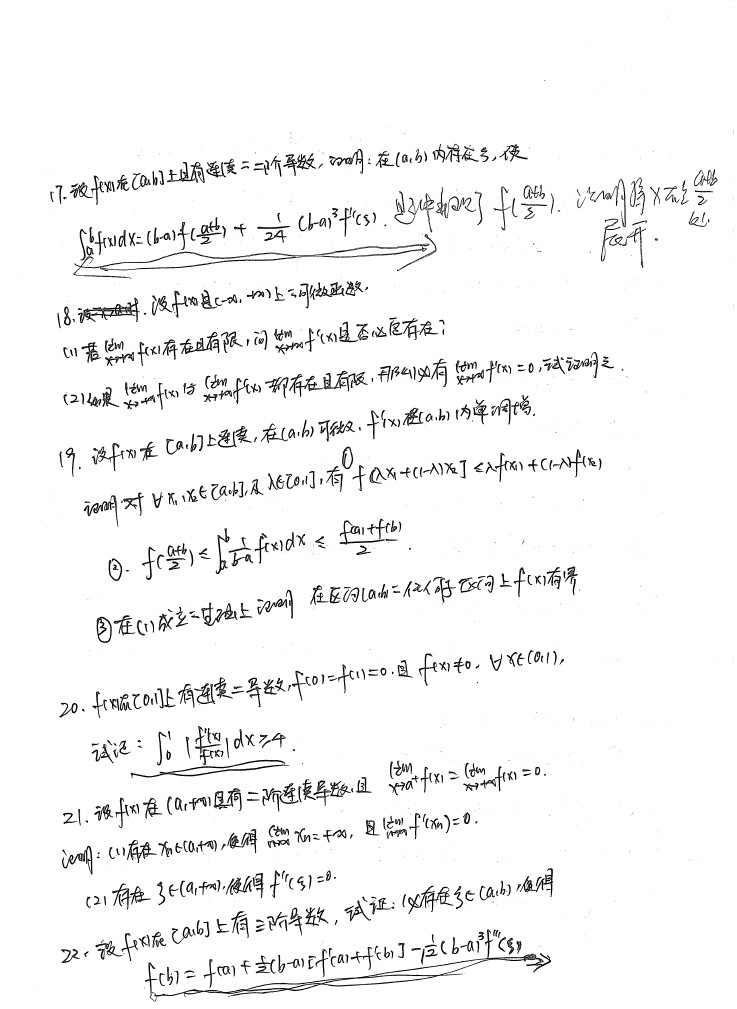 17. 设f(x)在[a,b]上具有连续二阶导数, 证明: 在(a,b)内存在ξ, 使
∫_a^b f(x)dx = (b-a)f(\frac{a+b}{2}) + \frac{1}{24}(b-a)^3 f''(ξ).
题中出现了 f(\frac{a+b}{2}). 证明将x在\frac{a+b}{2}处
展开.
18. 设f(x)是(-∞,+∞)上可微函数.
(1) 若\lim_{x→+∞}f(x)存在且有限, 问\lim_{x→+∞}f'(x)是否必定存在?
(2) 如果\lim_{x→+∞}f(x)与\lim_{x→+∞}f'(x)都存在且有限, 那么必有\lim_{x→+∞}f'(x)=0, 试证明之.
19. 设f(x)在[a,b]上连续, 在(a,b)可微, f'(x)在(a,b)内单调增.
证明对∀x₁,x₂∈[a,b], 及λ∈[0,1], 有① f[λx₁+(1-λ)x₂] ≤ λf(x₁)+(1-λ)f(x₂)
②. f(\frac{a+b}{2}) ≤ ∫_a^b \frac{1}{b-a}f(x)dx ≤ \frac{f(a)+f(b)}{2}.
③ 在(1)成立基础上证明 在区间(a,b)任何子区间上f(x)有界
20. f(x)在[0,1]上有连续二导数, f(0)=f(1)=0. 且f(x)≠0. ∀x∈(0,1),
试证: ∫_0^1 |\frac{f''(x)}{f(x)}|dx ≥ 4.
21. 设f(x)在(a,+∞)具有二阶连续导数, 且\lim_{x→a^+}f(x)=\lim_{x→+∞}f(x)=0.
证明: (1) 存在xₙ∈(a,+∞), 使得\lim_{n→∞}xₙ=+∞, 且\lim_{n→∞}f'(xₙ)=0.
(2) 存在ξ∈(a,+∞), 使得f''(ξ)=0.
22. 设f(x)在[a,b]上有三阶导数, 试证: 必存在ξ∈(a,b), 使得
f(b) = f(a)+\frac{1}{2}(b-a)[f'(a)+f'(b)]-\frac{1}{12}(b-a)^3 f'''(ξ)